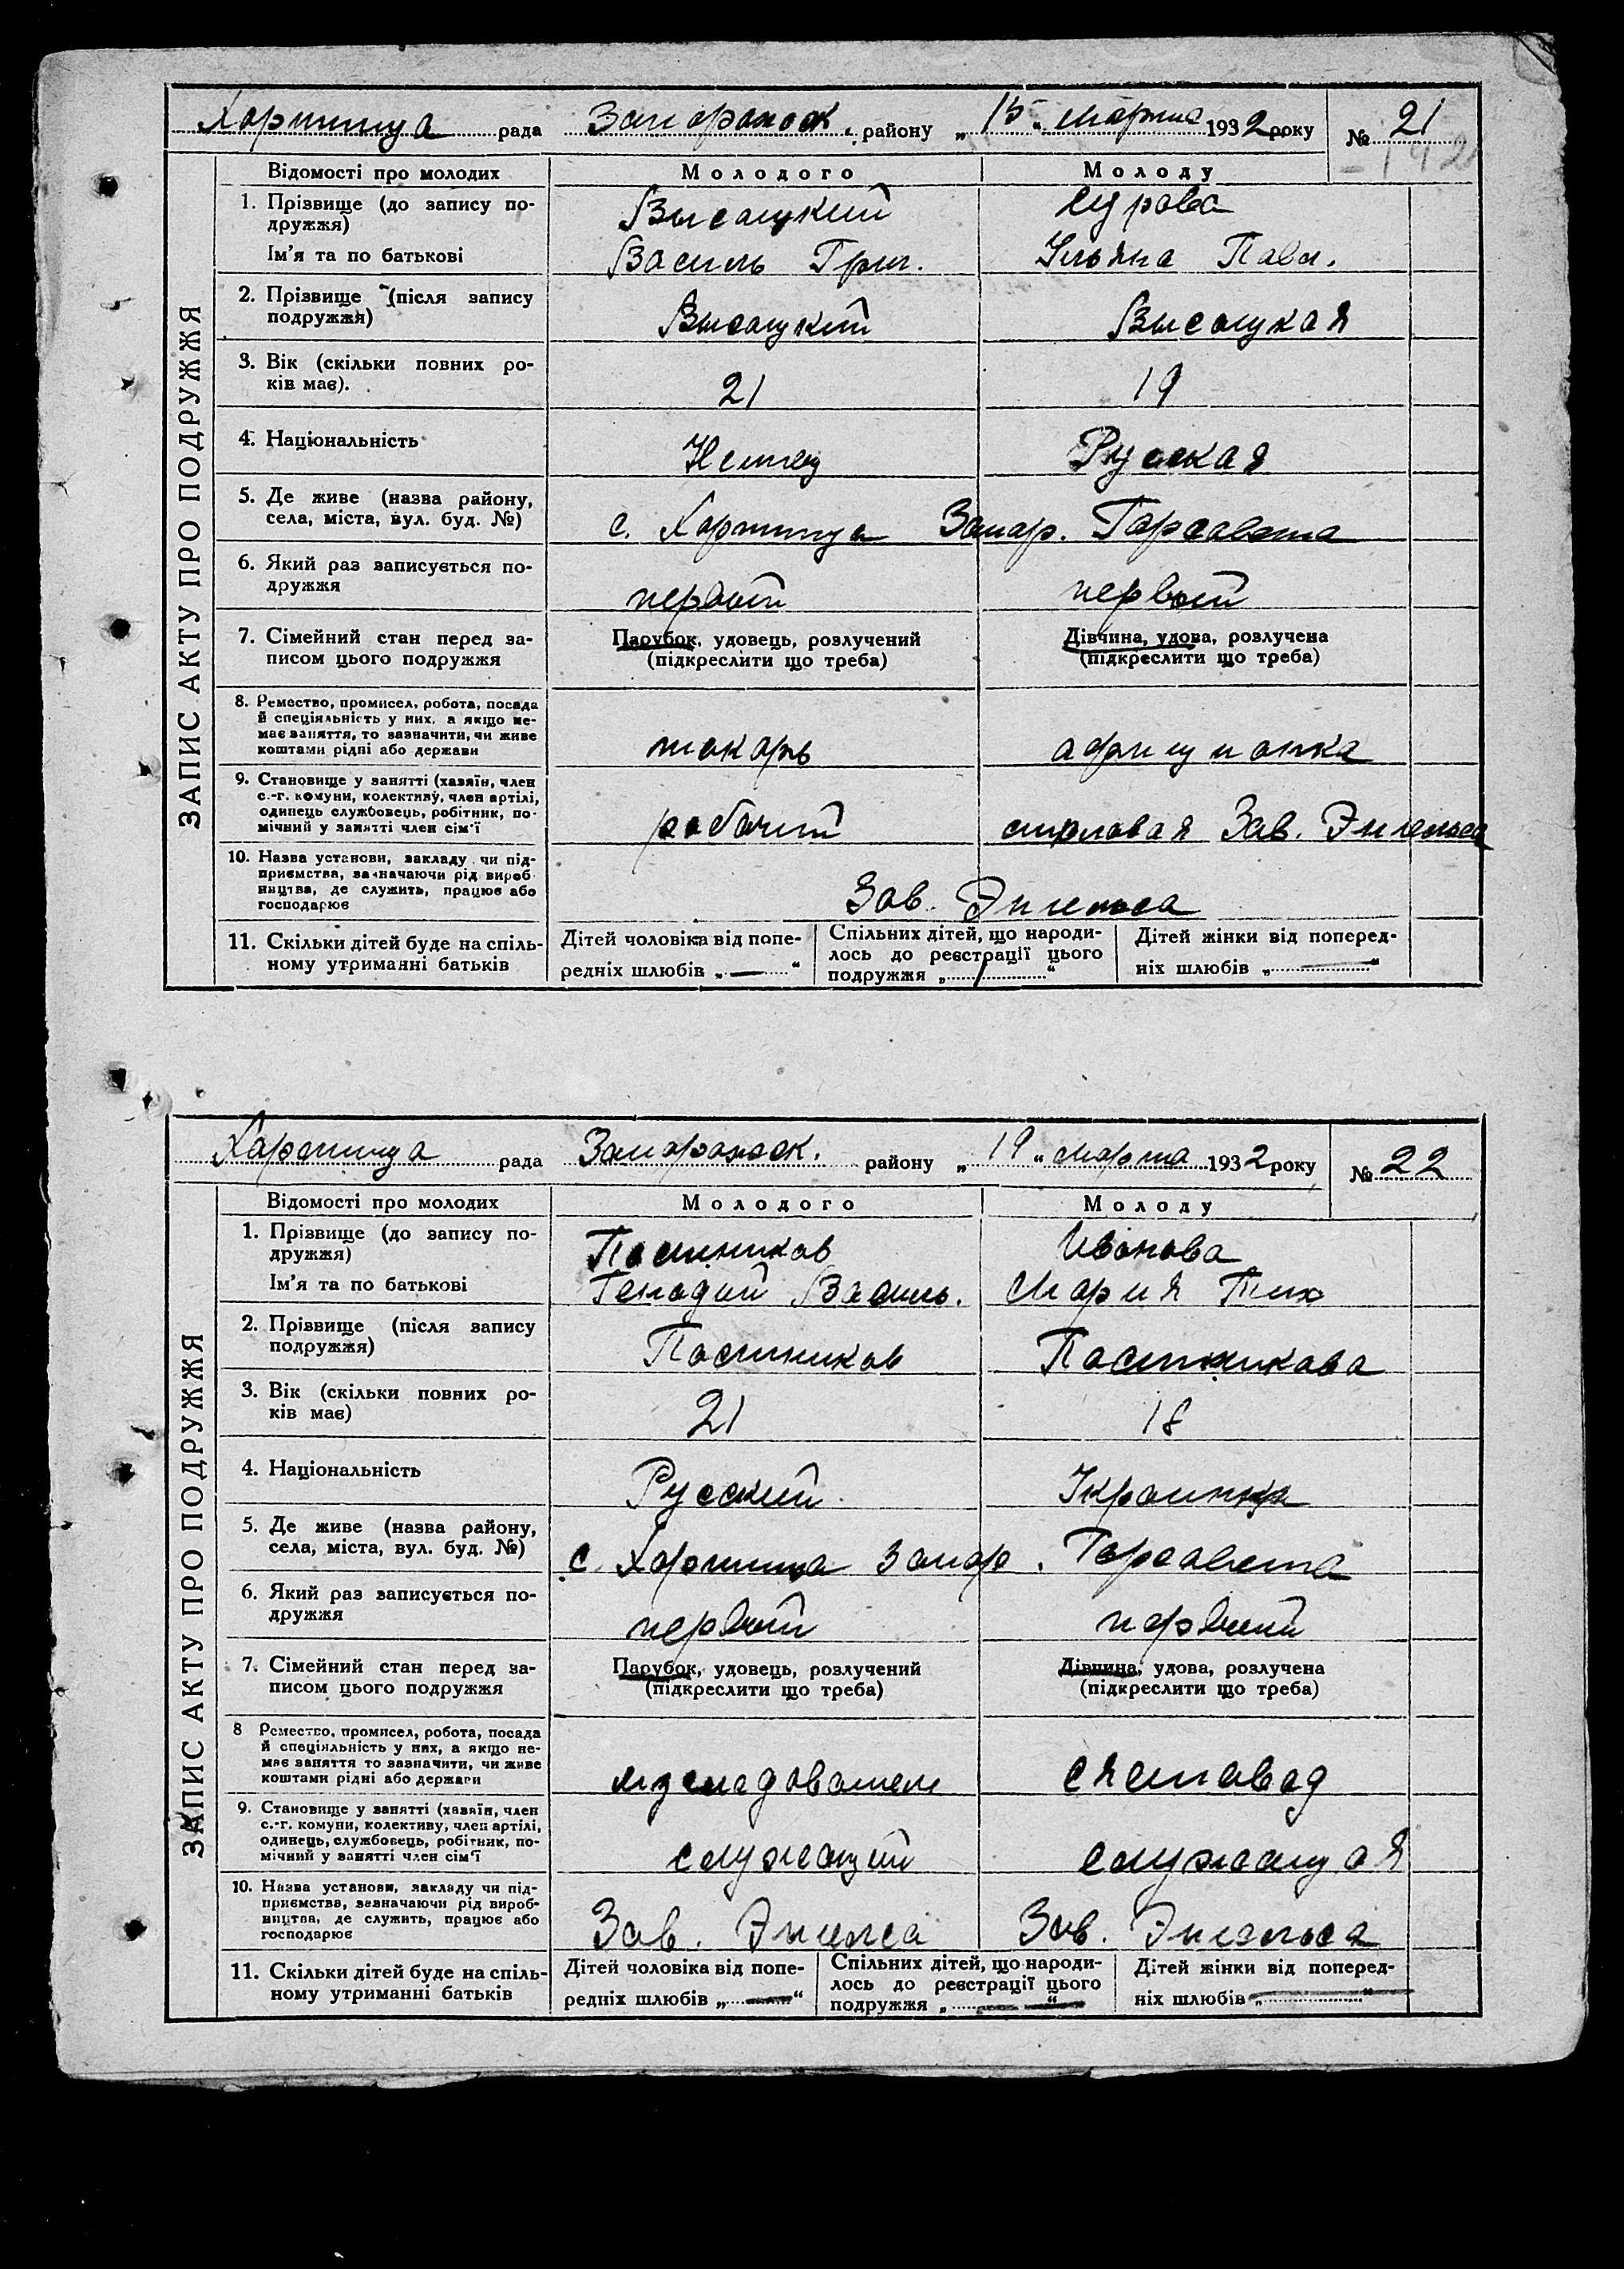 Хортица рада Запорожск. району „15" марта 1932 року № 21
Відомості про молодих Молодого Молоду
1. Прізвище (до запису по-
дружжя) Высоцкий Сурова
Ім'я та по батькові Василь Григ. Ульяна Павл.
2. Прізвище (після запису
подружжя) Высоцкий Высоцкая
3. Вік (скільки повних ро-
ків має). 21 19
4. Національність Немец Руская
5. Де живе (назва району,
села, міста, вул. буд. №) с. Хортица Запор. Горсовета
6. Який раз записується по-
дружжя первый первый
7. Сімейний стан перед за- Парубок, удовець, розлучений Дівчина, удова, розлучена
писом цього подружжя (підкреслити що треба) (підкреслити що треба)
8. Ремество, промисел, робота, посада
й спеціяльність у них, а якщо не-
має заняття, то зазначити, чи живе
коштами рідні або держави токарь официонка
9. Становище у занятті (хазяїн, член
с.-г. комуни, колективу, член артілі,
одинець службовець, робітник, по-
мічний у занятті член сім'ї рабочий столовая Зав. Энгельса
10. Назва установи, закладу чи під-
приємства, зазначаючи рід вироб-
ництва, де служить, працює або
господарює Зав. Энгельса
11. Скільки дітей буде на спіль-
ному утриманні батьків
Дітей чоловіка від попе-
редніх шлюбів „—"
Спільних дітей, що народи-
лось до реєстрації цього
подружжя „ "
Дітей жінки від поперед-
ніх шлюбів „—"
ЗАПИС АКТУ ПРО ПОДРУЖЖЯ
Хортица рада Запорожск. району „19" марта 1932 року № 22
Відомості про молодих Молодого Молоду
1. Прізвище (до запису по-
дружжя) Постников Иванова
Ім'я та по батькові Генадий Василь. Мария Тих
2. Прізвище (після запису
подружжя) Постников Постникова
3. Вік (скільки повних ро-
ків має) 21 18
4. Національність Русский Украинка
5. Де живе (назва району,
села, міста, вул. буд. №) с. Хортица Запор. Горсовета
6. Який раз записується по-
дружжя первый первый
7. Сімейний стан перед за- Парубок, удовець, розлучений Дівчина, удова, розлучена
писом цього подружжя (підкреслити що треба) (підкреслити що треба)
8 Ремество, промисел, робота, посада
й спеціяльність у них, а якщо не-
має заняття то зазначити, чи живе
коштами рідні або держави счетовод
9. Становище у занятті (хазяїн, член
с.-г. комуни, колективу, член артілі,
одинець, службовець, робітник, по-
мічний у занятті член сім'ї служащий служащая
10. Назва установи, закладу чи під-
приємства, зазначаючи рід вироб-
ництва, де служить, працює або
господарює Зав. Энгельса Зав. Энгельса
11. Скільки дітей буде на спіль-
ному утриманні батьків
Дітей чоловіка від попе-
редніх шлюбів „—"
Спільних дітей, що народи-
лось до реєстрації цього
подружжя „—"
Дітей жінки від поперед-
ніх шлюбів „—"
ЗАПИС АКТУ ПРО ПОДРУЖЖЯ